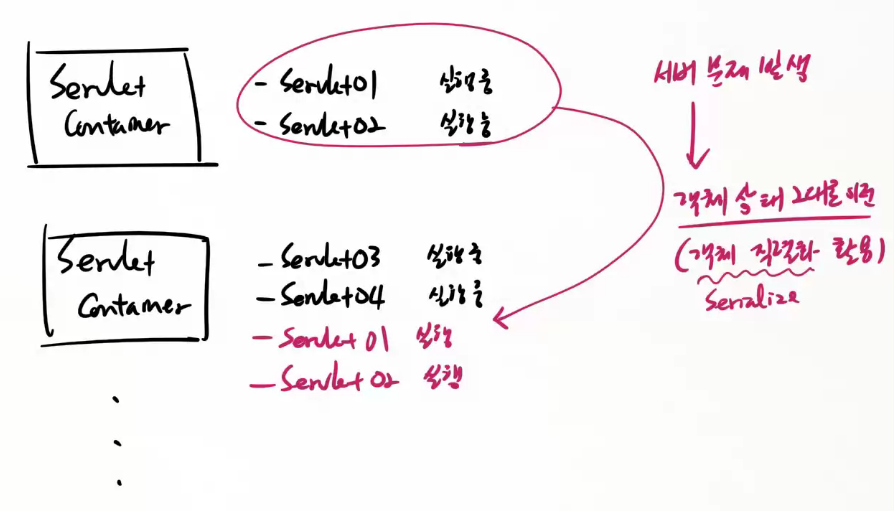 Servlet
Container
- Servlet01 실행중
- Servlet02 실행중
서버 문제 발생
객체 상태 그대로 이전
(객체 직렬화 활용)
Serialize
Servlet
Container
- Servlet03 실행중
- Servlet04 실행중
- Servlet 01 실행
- Servlet 02 실행